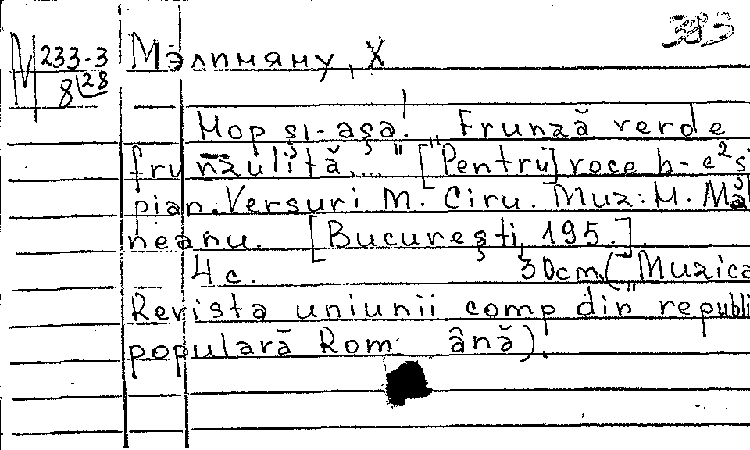 383
М 233-3 Мэлиняну, Х
8/28
Hop și-așa! „Frunză verde
frunzuliță..." [Pentru] voce b-e²și
pian. Versuri M. Ciru. Muz: H. Măl
neanu. [București, 195.]
4 c. 30cm. („Muzica"
Revista uniunii comp din republi
populară Rom ână).